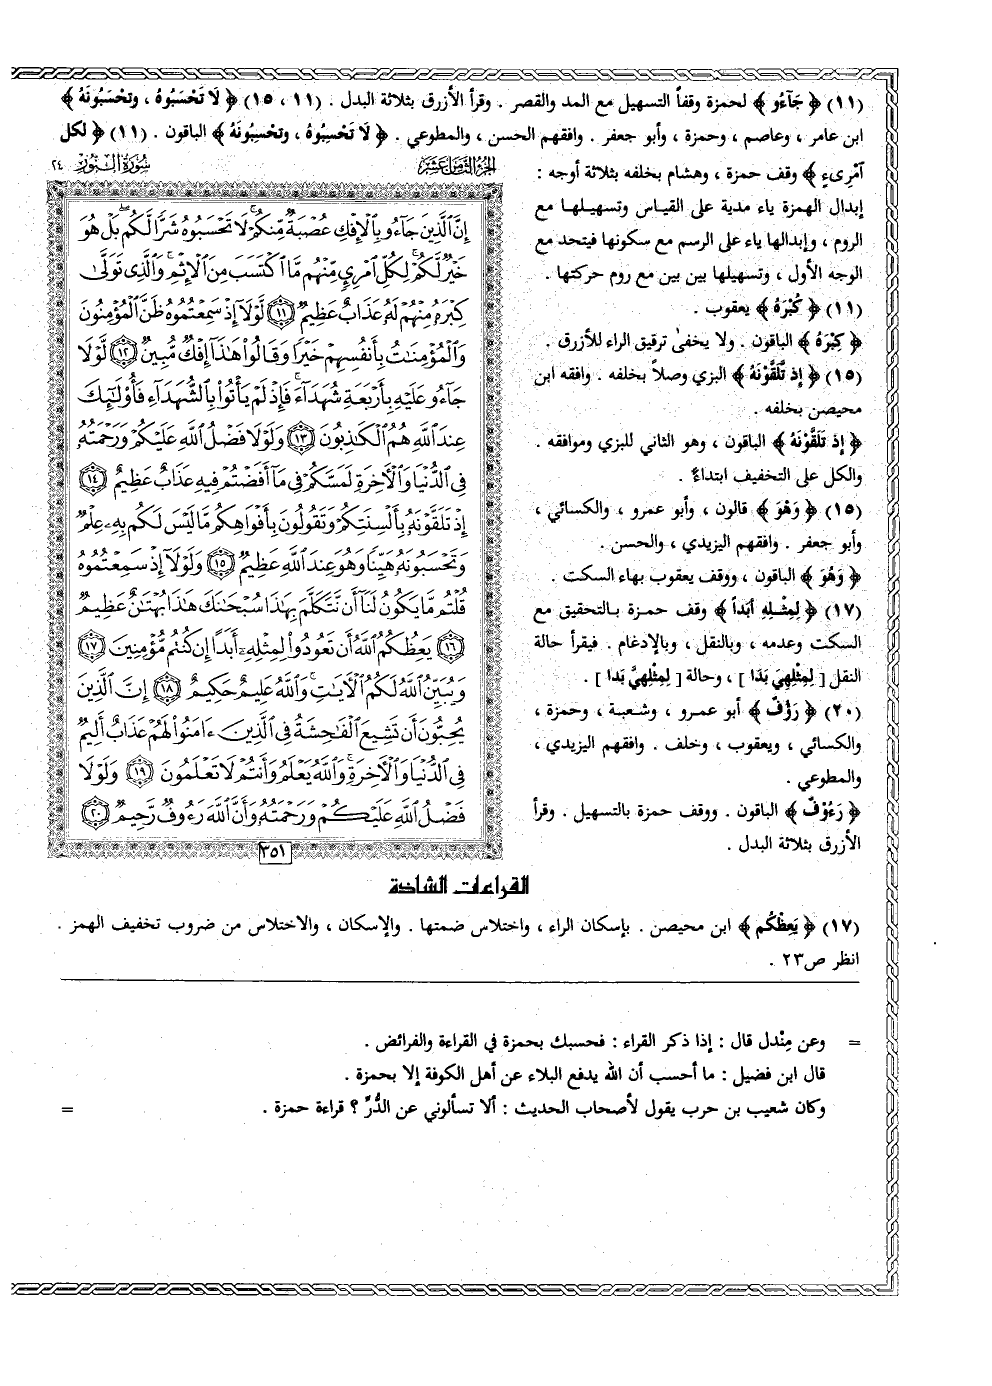 (١١) ﴿ جَآءُو ﴾ لحمزة وقفاً التسهيل مع المد والقصر . وقرأ الأزرق بثلاثة البدل . (١١ ، ١٥) ﴿ لَا تَحْسَبُوهُ ، وتَحْسَبُونَهُ ﴾
ابن عامر ، وعاصم ، وحمزة ، وأبو جعفر . وافقهم الحسن ، والمطوعي . ﴿ لَا تَحْسِبُوهُ ، وتَحْسِبُونَهُ ﴾ الباقون . (١١) ﴿ لكل
آمْرِىءٍ ﴾ وقف حمزة ، وهشام بخلفه بثلاثة أوجه :
إبدال الهمزة ياء مدية على القياس وتسهيلها مع
الروم ، وإبدالها ياء على الرسم مع سكونها فيتحد مع
الوجه الأول ، وتسهيلها بين بين مع روم حركتها .
(١١) ﴿ كُبْرَهُ ﴾ يعقوب .
﴿ كِبْرَهُ ﴾ الباقون . ولا يخفىٰ ترقيق الراء للأزرق .
(١٥) ﴿ إِذ تَّلَقَّوْنَهُ ﴾ البزي وصلاً بخلفه . وافقه ابن
محيصن بخلفه .
﴿ إِذ تَلَقَّوْنَهُ ﴾ الباقون ، وهو الثاني للبزي وموافقه .
والكل على التخفيف ابتداءً .
(١٥) ﴿ وَهْوَ ﴾ قالون ، وأبو عمرو ، والكسائي ،
وأبو جعفر . وافقهم اليزيدي ، والحسن .
﴿ وَهُوَ ﴾ الباقون ، ووقف يعقوب بهاء السكت .
(١٧) ﴿ لِمِثْلِهِ أَبَداً ﴾ وقف حمزة بالتحقيق مع
السكت وعدمه ، وبالنقل ، وبالإدغام . فيقرأ حالة
النقل [ لِمِثْلِهِيَ بَدَا ] ، وحالة [ لِمِثْلِهِيَّ بَدا ] .
(٢٠) ﴿ رَؤُفٌ ﴾ أبو عمرو ، وشعبة ، وحمزة ،
والكسائي ، ويعقوب ، وخلف . وافقهم اليزيدي ،
والمطوعي .
﴿ رَءُوْفٌ ﴾ الباقون . ووقف حمزة بالتسهيل . وقرأ
الأزرق بثلاثة البدل .
الجزء الثامن عشر سورة النور ٢٤
إِنَّ الَّذِينَ جَآءُو بِالْإِفْكِ عُصْبَةٌ مِّنكُمْ لَا تَحْسَبُوهُ شَرًّا لَّكُم بَلْ هُوَ
خَيْرٌ لَّكُمْ لِكُلِّ امْرِئٍ مِّنْهُم مَّا اكْتَسَبَ مِنَ الْإِثْمِ وَالَّذِى تَوَلَّىٰ
كِبْرَهُ مِنْهُمْ لَهُ عَذَابٌ عَظِيمٌ ١١ لَّوْلَآ إِذْ سَمِعْتُمُوهُ ظَنَّ الْمُؤْمِنُونَ
وَالْمُؤْمِنَٰتُ بِأَنفُسِهِمْ خَيْرًا وَقَالُوا هَٰذَآ إِفْكٌ مُّبِينٌ ١٢ لَّوْلَا
جَآءُو عَلَيْهِ بِأَرْبَعَةِ شُهَدَآءَ فَإِذْ لَمْ يَأْتُوا بِالشُّهَدَآءِ فَأُولَٰٓئِكَ
عِندَ اللَّهِ هُمُ الْكَٰذِبُونَ ١٣ وَلَوْلَا فَضْلُ اللَّهِ عَلَيْكُمْ وَرَحْمَتُهُ
فِى الدُّنْيَا وَالْآخِرَةِ لَمَسَّكُمْ فِى مَآ أَفَضْتُمْ فِيهِ عَذَابٌ عَظِيمٌ ١٤
إِذْ تَلَقَّوْنَهُ بِأَلْسِنَتِكُمْ وَتَقُولُونَ بِأَفْوَاهِكُم مَّا لَيْسَ لَكُم بِهِ عِلْمٌ
وَتَحْسَبُونَهُ هَيِّنًا وَهُوَ عِندَ اللَّهِ عَظِيمٌ ١٥ وَلَوْلَآ إِذْ سَمِعْتُمُوهُ
قُلْتُم مَّا يَكُونُ لَنَآ أَن نَّتَكَلَّمَ بِهَٰذَا سُبْحَٰنَكَ هَٰذَا بُهْتَٰنٌ عَظِيمٌ
١٦ يَعِظُكُمُ اللَّهُ أَن تَعُودُوا لِمِثْلِهِ أَبَدًا إِن كُنتُم مُّؤْمِنِينَ ١٧
وَيُبَيِّنُ اللَّهُ لَكُمُ الْآيَٰتِ وَاللَّهُ عَلِيمٌ حَكِيمٌ ١٨ إِنَّ الَّذِينَ
يُحِبُّونَ أَن تَشِيعَ الْفَٰحِشَةُ فِى الَّذِينَ ءَامَنُوا لَهُمْ عَذَابٌ أَلِيمٌ
فِى الدُّنْيَا وَالْآخِرَةِ وَاللَّهُ يَعْلَمُ وَأَنتُمْ لَا تَعْلَمُونَ ١٩ وَلَوْلَا
فَضْلُ اللَّهِ عَلَيْكُمْ وَرَحْمَتُهُ وَأَنَّ اللَّهَ رَءُوفٌ رَّحِيمٌ ٢٠
٣٥١
القراءات الشاذة
(١٧) ﴿ يَعِظْكُم ﴾ ابن محيصن . بإسكان الراء ، واختلاس ضمتها . والإسكان ، والاختلاس من ضروب تخفيف الهمز .
انظر ص٢٣ .
= وعن مِنْدل قال : إذا ذكر القراء : فحسبك بحمزة في القراءة والفرائض .
قال ابن فضيل : ما أحسب أن الله يدفع البلاء عن أهل الكوفة إلا بحمزة .
وكان شعيب بن حرب يقول لأصحاب الحديث : ألا تسألوني عن الدُّرِّ ؟ قراءة حمزة . =